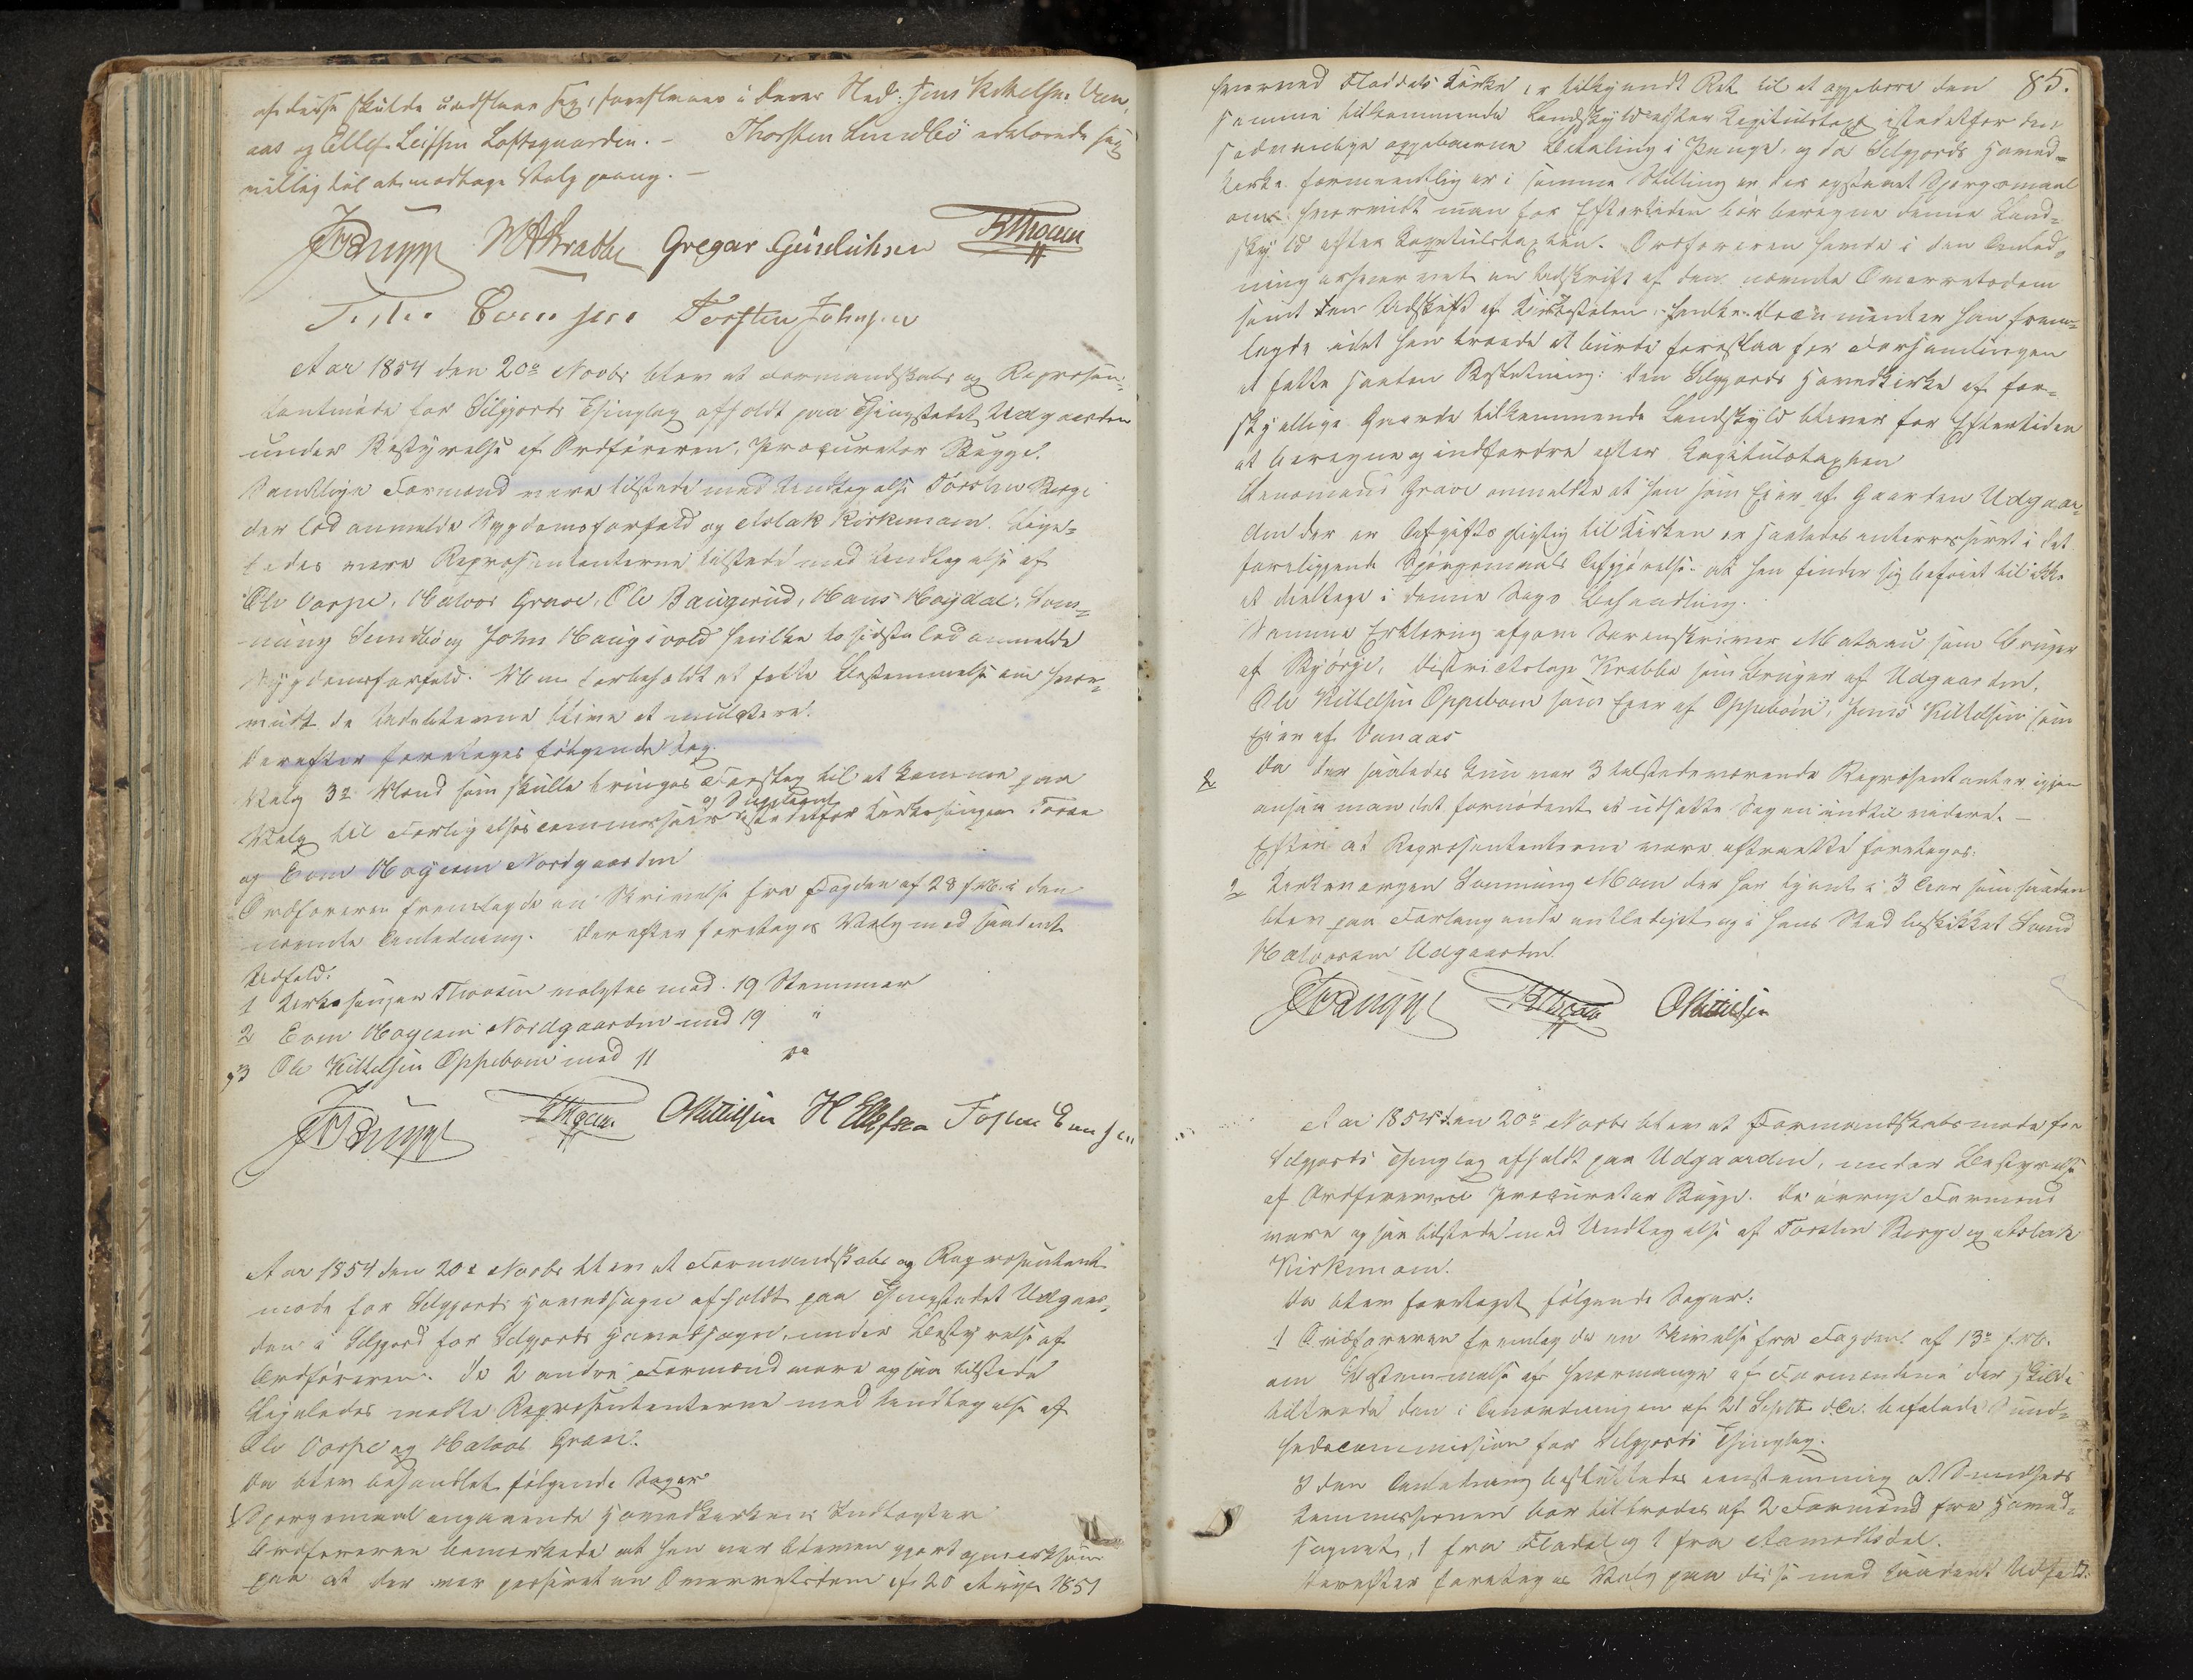 af disse skulde undslaae sig, foreslaaes i deres Sted: Jens Kittelsen Vaa-
aas og Ellef Leifsen Loftsgaarden. – Thorsten Sundbö erklærede sig
villig til at modtage Valg paany. –
JBugge WAKrabbe Gregar Gundichsen HThoesen
Torsten Johnsen
Aar 1854 den 20de Novbr blev et Formandskabs og Repræsen-
tantmøde for Silgjords Thinglag afholdt paa Thingstedet Udgaarden
under Bestyrelse af Ordføreren, Procurator Bugge.
Samtlige Formænd vare tilstede med Undtagelse Torsten Berge
der lod anmelde Sygdomsforfald og Aslak Kirkemoen. Lige-
ledes vare Repræsentanterne tilstede med Undtagelse af
Ole Vaspe, Halvor Grave, Ole Baugerud, Hans Høydal, Søn-
nung Sundbö og John Haugsvold hvilke to sidste lod anmelde
Sygdomsforfald. Man forbeholdt at fatte Bestemmelse om hvor-
vidt de udeblevne blive at mulctere.
Derefter foretages følgende Sag.
Valg 3de Mænd som skulle bringes i Forslag til at komme paa
og Suppleant
Valg til Forligelsescommissair istedetfor Kirkesanger Thoesen
og Even Høyesen Nordgaarden
Ordføreren fremlagde en Skrivelse fra Fogden af 28 f.M. i den
nævnte Anledning. Derefter foretages Valg med saadant
Udfald:
1 Kirkesanger Thoesen valgtes med 19 Stemmer
2 Even Høyesen Nordgaarden med 19 "
3 Ole Kittelsen Oppeboen med 11 "
JBugge HThoesen OKittilsen H Ellefsen Torsten Evensen
Aar 1854 den 20de Novbr blev et Formandskabs og Repræsentant
møde for Silgjords Hovedsogn afholdt paa Thingstedet Udgaar-
den i Silgjord for Silgjords Hovedsogn, under Bestyrelse af
Ordføreren. De 2 andre Formænd vare ogsaa tilstede
Ligeledes mødte Repræsentanterne med Undtagelse af
Ole Vaspe og Halvor Grave.
Da blev behandlet følgende Sager
1 Spørgsmaal angaaende Hovedkirkens Indtægter
Ordføreren bemærkede at han var bleven gjort opmærksom
paa at der var passeret en Overretsdom af 20 August 1851
85.
hvorved Fladdals Kirke er tilkjendt Ret til at oppebære den
samme tilkommende Landskyld efter Kapitulstaxt istedetfor den
sædvanlige oppebaarne Betaling i Penge, og da Silgjords Hoved-
kirke formeentlig er i samme Stilling er der opstaaet Spørgsmaal
om hvorvidt man for Eftertiden bør beregne denne Land-
skyld efter Kapitulstaxten. Ordføreren havde i den Anled-
ning erhvervet en Udskrift af den nævnte Overretsdom
samt en Udskrift af Kirkestolen, hvilke Documenter han frem-
lagde idet han troede at burde foreslaa for Forsamlingen
at fatte saadan Beslutning: Den Silgjords Hovedkirke af for-
skjellige Gaarde tilkommende Landskyld bliver for Eftertiden
at beregne og indfordre efter Kapitulstaxten
Lensmand Grave anmeldte at han som Eier af Gaarden Udgaar-
den der er Afgiftspligtig til Kirken er saaledes interesseret i det
foreliggende Spørgsmaals Afgjørelse at han finder sig beføiet til ikke
at deeltage i denne Sags Behandling.
Samme Erklæring afgave Sorenskriver Mathau som Bruger
af Bjørge, Districtslæge Krabbe som Bruger af Udgaarden,
Ole Kittelsen Oppeboen som Eier af Oppeboen, Jens Kittelsen som
Eier af Vaaaas
Da der saaledes kun var 3 tilstedeværende Repræsentanter igjen
ansaa man det fornødent at udsætte Sagen indtil videre. –
Efter at Repræsentanterne vare aftraadte foretages:
2 Kirkevergen Sønnung Moen der har tjent i 3 Aar som saadan
blev paa Forlangende entlediget og i hans Sted beskikket Svend
Halvorsen Udgaarden.
JBugge HThoesen OKittilsen
Aar 1854 den 20de Novbr blev et Formandskabsmøde for
Silgjords Thinglag afholdt paa Udgaarden, under Bestyrelse
af Ordføreren Procurator Bugge. De øvrige Formænd
vare ogsaa tilstede med Undtagelse af Torsten Berge og Aslak
Kirkemoen.
Da blev foretaget følgende Sager:
1 Ordføreren fremlagde en Skrivelse fra Fogden af 13de f.M.
om Bestemmelse af hvormange af Formændene der skulde
tiltræde den i Anordningen af 21 Septbr d.A. befalede Sund-
hedscommission for Silgjords Thinglag.
I den Anledning besluttedes eenstemmig at Sundheds
Kommissionen bør tiltrædes af 2 Formænd fra Hoved-
sognet, 1 fra Fladal og 1 fra Aamotsdal.
Derefter foretages Valg paa disse med saadant Udfald: